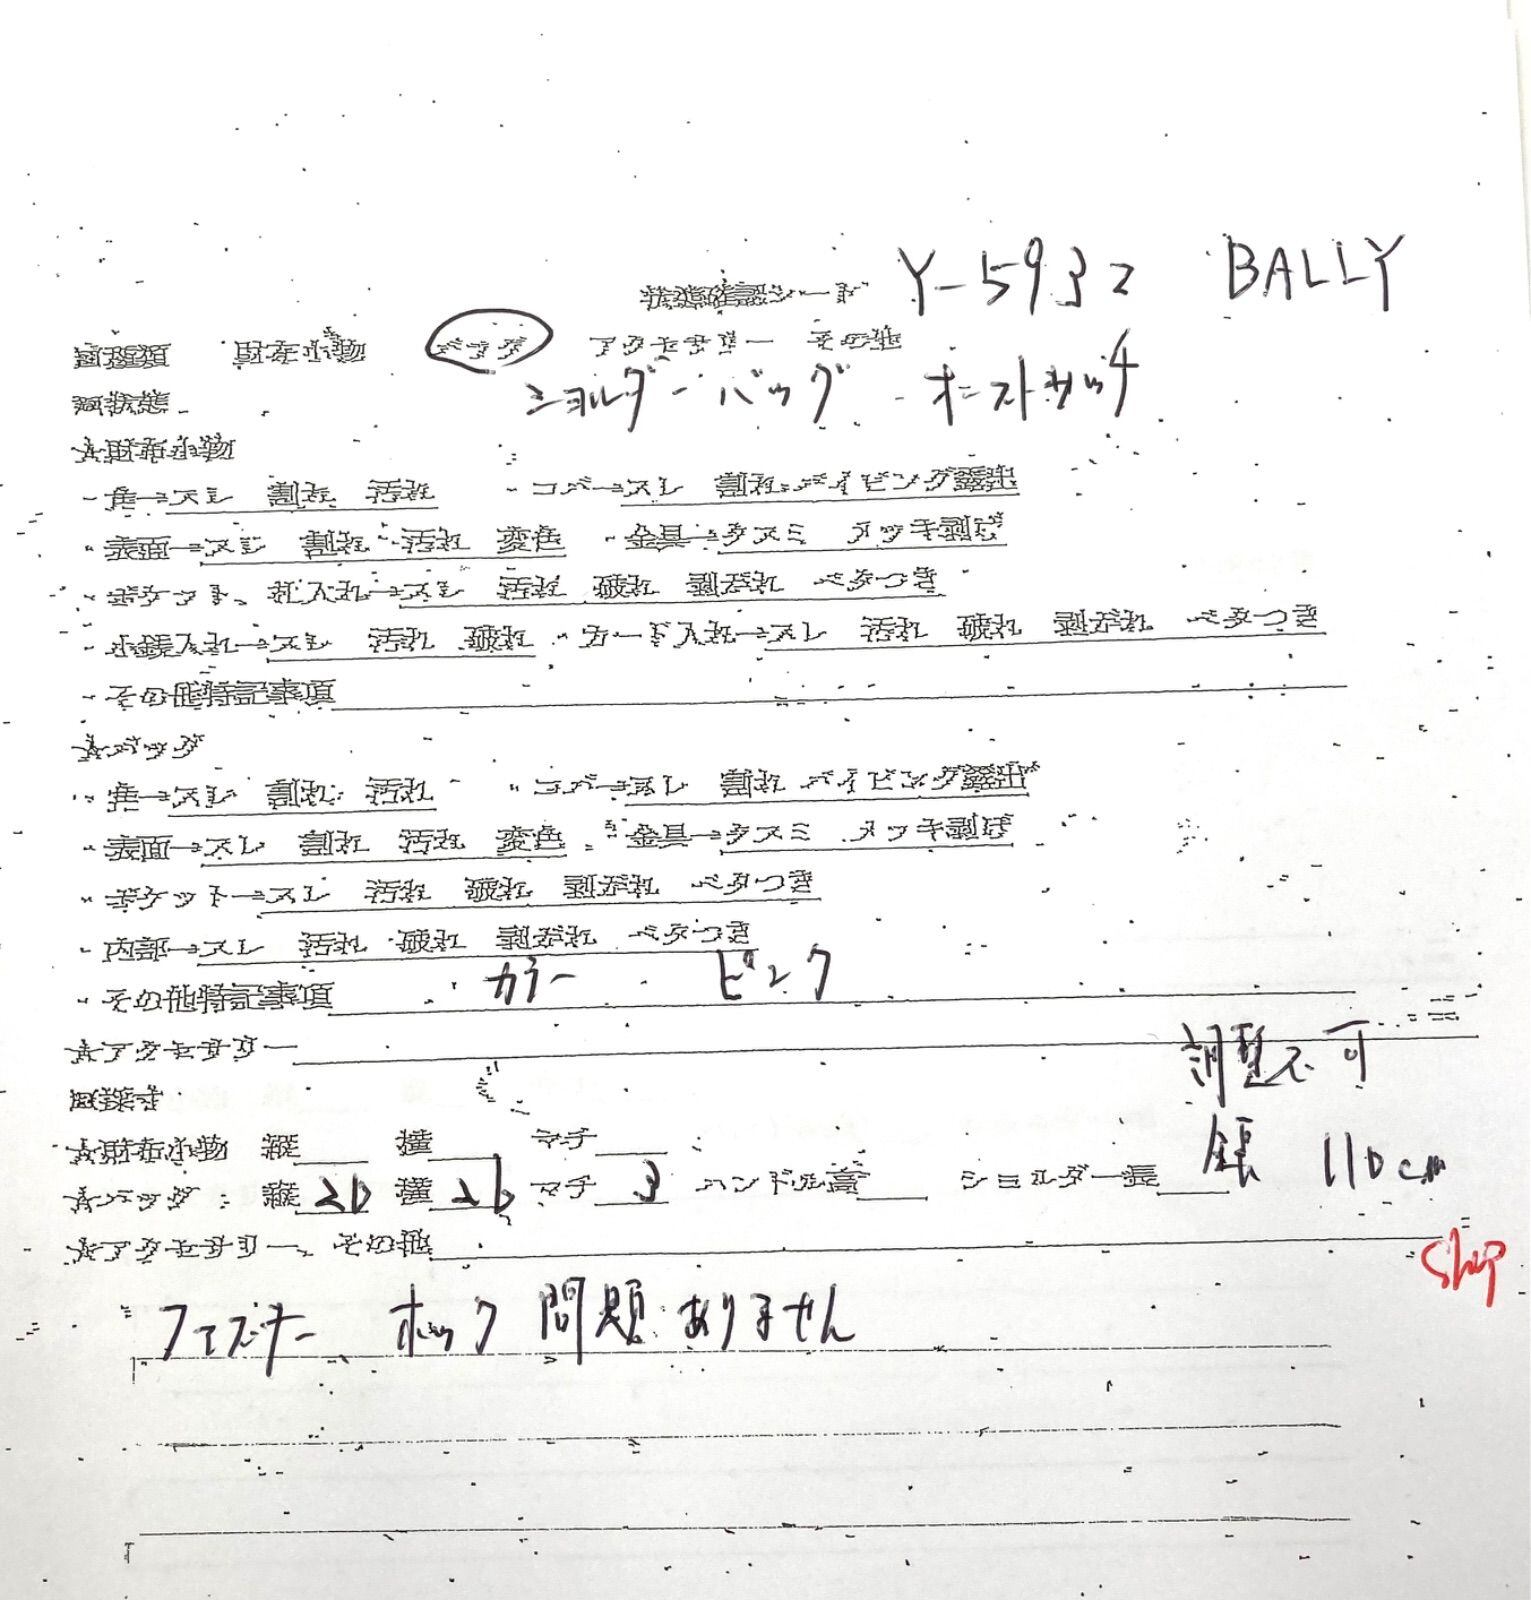 状態確認シート Y-5932 BALLY
財布小物 バッグ アクセサリー その他
ショルダーバッグ オーストリッチ
状態
★財布小物
・角→スレ 割れ 汚れ ・コバ→スレ 割れ パイピング露出
・表面→スレ 割れ 汚れ 変色 ・金具→クスミ メッキ剥げ
・ポケット、札入れ→スレ 汚れ 破れ 剥がれ ベタつき
・小銭入れ→スレ 汚れ 破れ ・カード入れ→スレ 汚れ 破れ 剥がれ ベタつき
・その他特記事項
★バッグ
・角→スレ 割れ 汚れ ・コバ→スレ 割れ パイピング露出
・表面→スレ 割れ 汚れ 変色 ・金具→クスミ メッキ剥げ
・ポケット→スレ 汚れ 破れ 剥がれ ベタつき
・内部→スレ 汚れ 破れ 剥がれ ベタつき
・その他特記事項 カラー ピンク
★アクセサリー
調整不可
採寸
★財布小物 縦 横 マチ
★バッグ 縦 20 横 26 マチ 3 ハンドル高 ショルダー長 全長 110cm
★アクセサリー、その他
Shop
ファスナー ホック 問題ありません